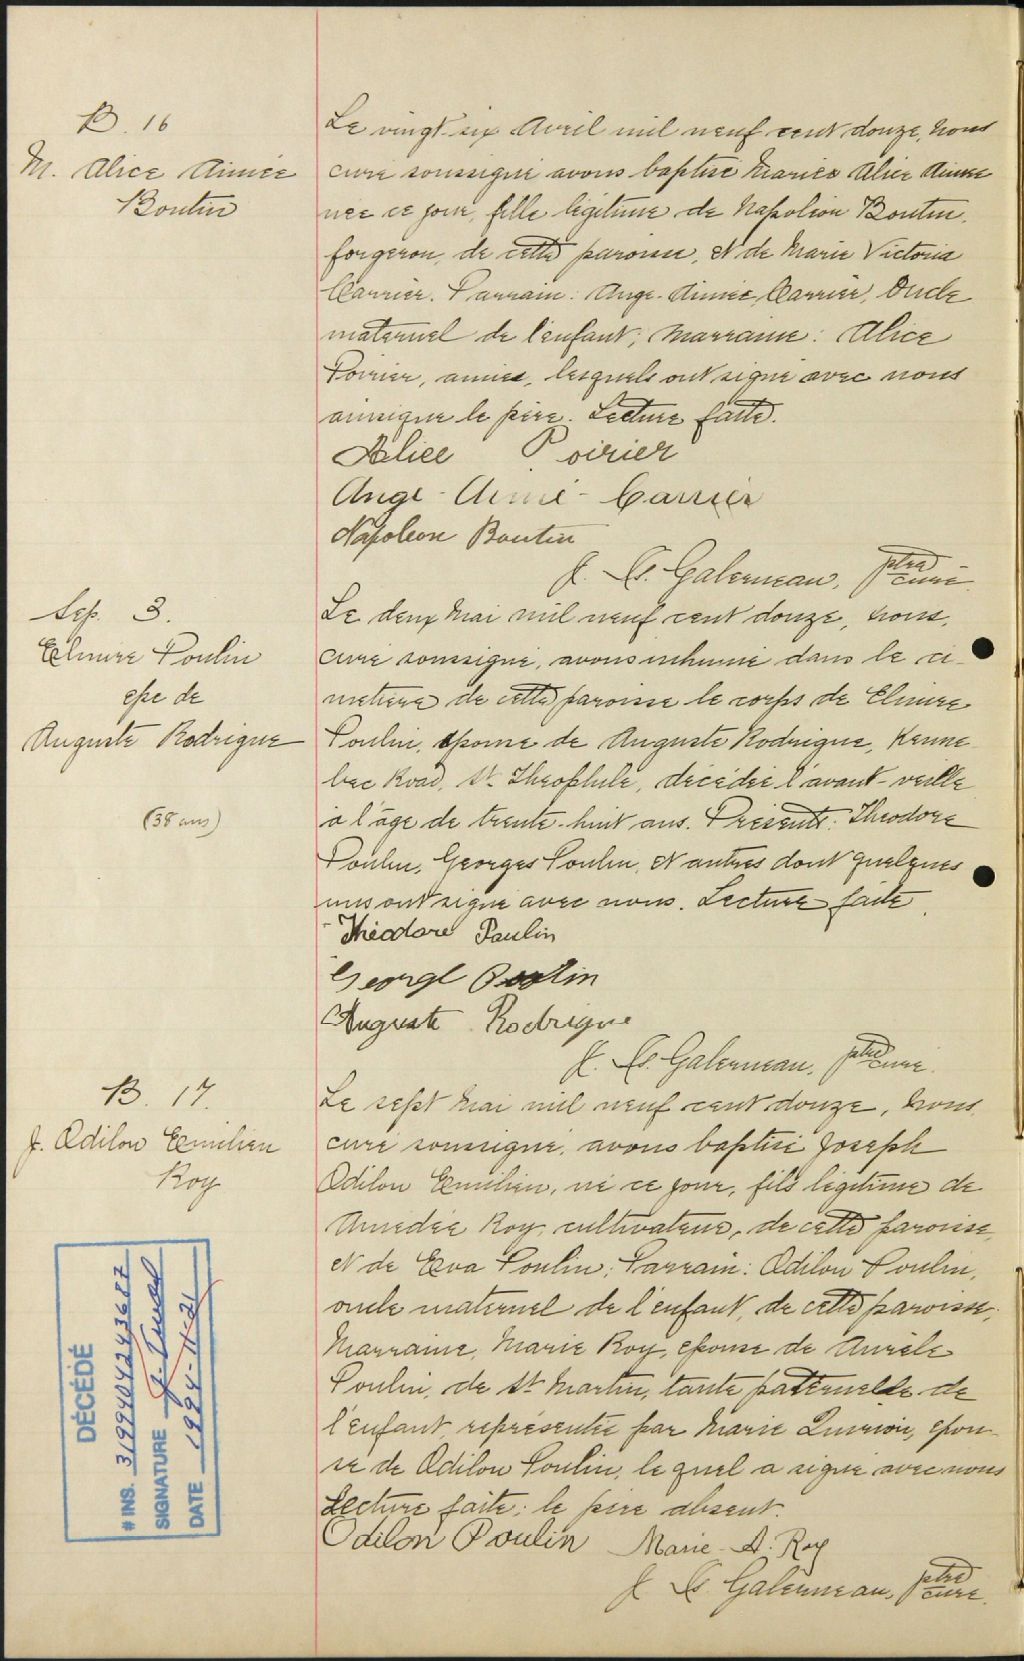 B. 16
M. Alice Aimée
Boutin
Le vingt-six Avril mil neuf cent douze, nous
curé soussigné avons baptisé Marie Alice Aimée
née ce jour, fille légitime de Napoléon Boutin,
forgeron, de cette paroisse, et de Marie Victoria
Carrier. Parrain: Ange-Aimée Carrier, Oncle
maternel de l'enfant; Marraine: Alice
Poirier, amies, lesquels ont signé avec nous
ainsi que le père. Lecture faite.
Alice Poirier
Ange-Aimé-Carrier
Napoleon Boutin
J. Galerneau, ptre curé
Sep. 3.
Elmire Poulin
epe de
Auguste Rodrigue
(38 ans)
Le deux Mai mil neuf cent douze, nous,
curé soussigné, avons inhumé dans le ci-
metière de cette paroisse le corps de Elmire
Poulin, épouse de Auguste Rodrigue, Kenne
bec Road, St. Théophile, décédée l'avant-veille
à l'âge de trente-huit ans. Présents: Théodore
Poulin, Georges Poulin, et autres dont quelques
uns ont signé avec nous. Lecture faite.
Théodore Poulin
George Poulin
Auguste Rodrigue
J. Galerneau, ptre curé.
B. 17.
J. Odilon Emilien
Roy
Le sept Mai mil neuf cent douze, nous,
curé soussigné, avons baptisé Joseph
Odilon Emilien, né ce jour, fils légitime de
Amédée Roy, cultivateur, de cette paroisse,
et de Eva Poulin; Parrain: Odilon Poulin,
oncle maternel de l'enfant, de cette paroisse;
Marraine, Marie Roy, épouse de Aurèle
Poulin, de St Martin, tante paternelle de
l'enfant, représentée par Marie Quirion, épou-
se de Odilon Poulin, lequel a signé avec nous
Lecture faite; le père absent.
Odilon Poulin Marie-A. Roy
J. Galerneau, ptre curé.
DÉCÉDÉ
# INS. 3199404243687
SIGNATURE
DATE 1994-11-21